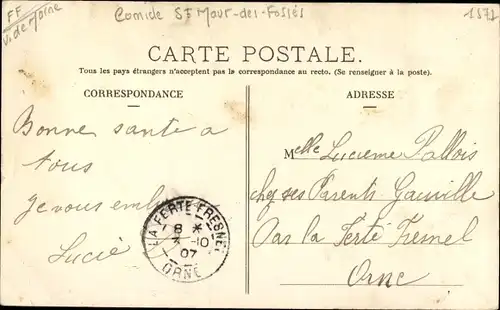 FF
V. de Marne
Comice St Maur-des-Fossés
CARTE POSTALE.
Tous les pays étrangers n'acceptent pas la correspondance au recto. (Se renseigner à la poste.)
CORRESPONDANCE
ADRESSE
Bonne santé a
tous
je vous emb
Lucie
LA FERTE-FRESNEL
8 *
2 -10
07
ORNE
Melle Lucienne Pallois
chez ses Parents Gauville
Par la Ferté Fresnel
Orne